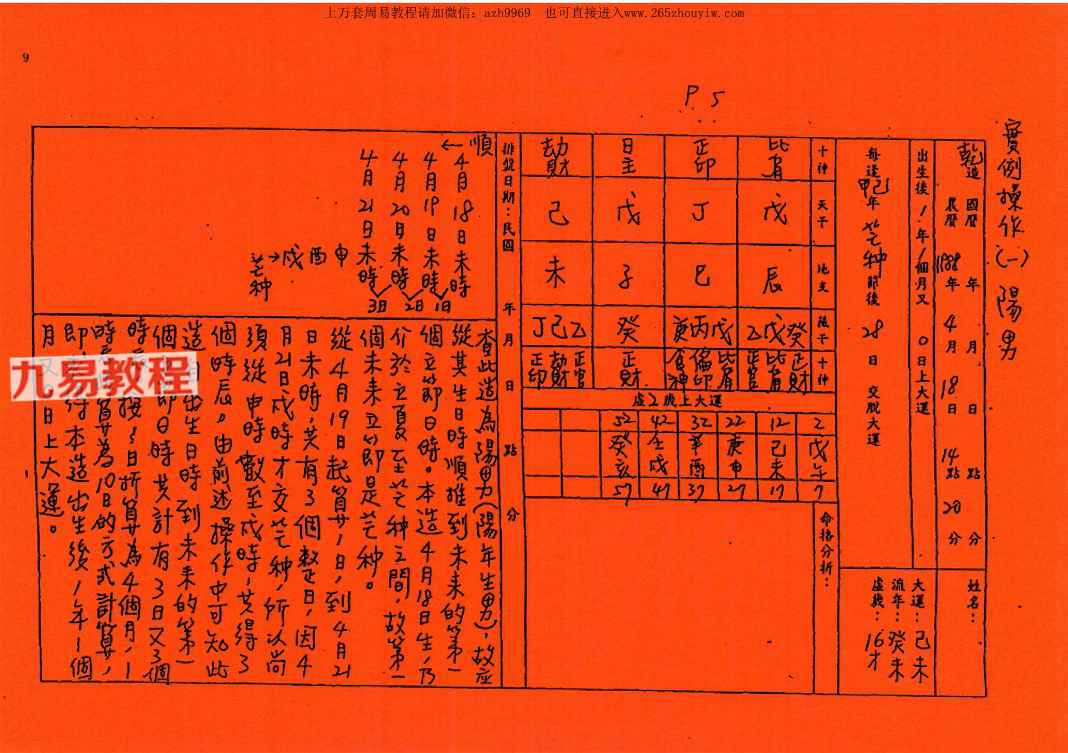 上万套周易教程请加微信：azh9969　也可直接进入www.265zhouyiw.com
9
P 5
實例操作(一)陽男
乾造 國曆 年 月 日 點 分
農曆 1988年 4月 18日 14點 20分
姓名：
出生後1年1個月又0日上大運
每逢甲己年芒种節後28日交脫大運
大運：己未
流年：癸未
虛歲：16才
十神 比肩 正印 日主 劫財
天干 戊 丁 戊 己
地支 辰 巳 子 未
藏干 癸戊乙 戊丙庚 癸 乙己丁
十神 正財 比肩 正官 比肩 偏印 食神 正財 正官 劫財 正印
虛2歲上大運
2 12 22 32 42 52
戊午 己未 庚申 辛酉 壬戌 癸亥
7 17 27 37 47 57
命格分析：
排盤日期：民國 年 月 日 點 分
順
←4月18日未時
4月19日未時
4月20日未時
4月21日未時
1日 2日 3日
申酉戌→芒种
查此造為陽男(陽年生男)，故应
從其生日時順推到未来的第一
個立節日時。本造4月18日生，乃
介於立夏至芒种之間，故第一
個未来立節是芒种。
從4月19日起算1日，到4月21
日未時，共有3個整日，因4
月21日戌時才交芒种，所以尚
須從申時數至戌時，共得3
個時辰。由前述操作中可知此
造 出生日時。到未来的第一
個 節日時共計有3日又3個
時 日折算為4個月，1
時 算為10日的方式計算，
即 得本造出生後1年1個
月又0日上大運。
九易教程